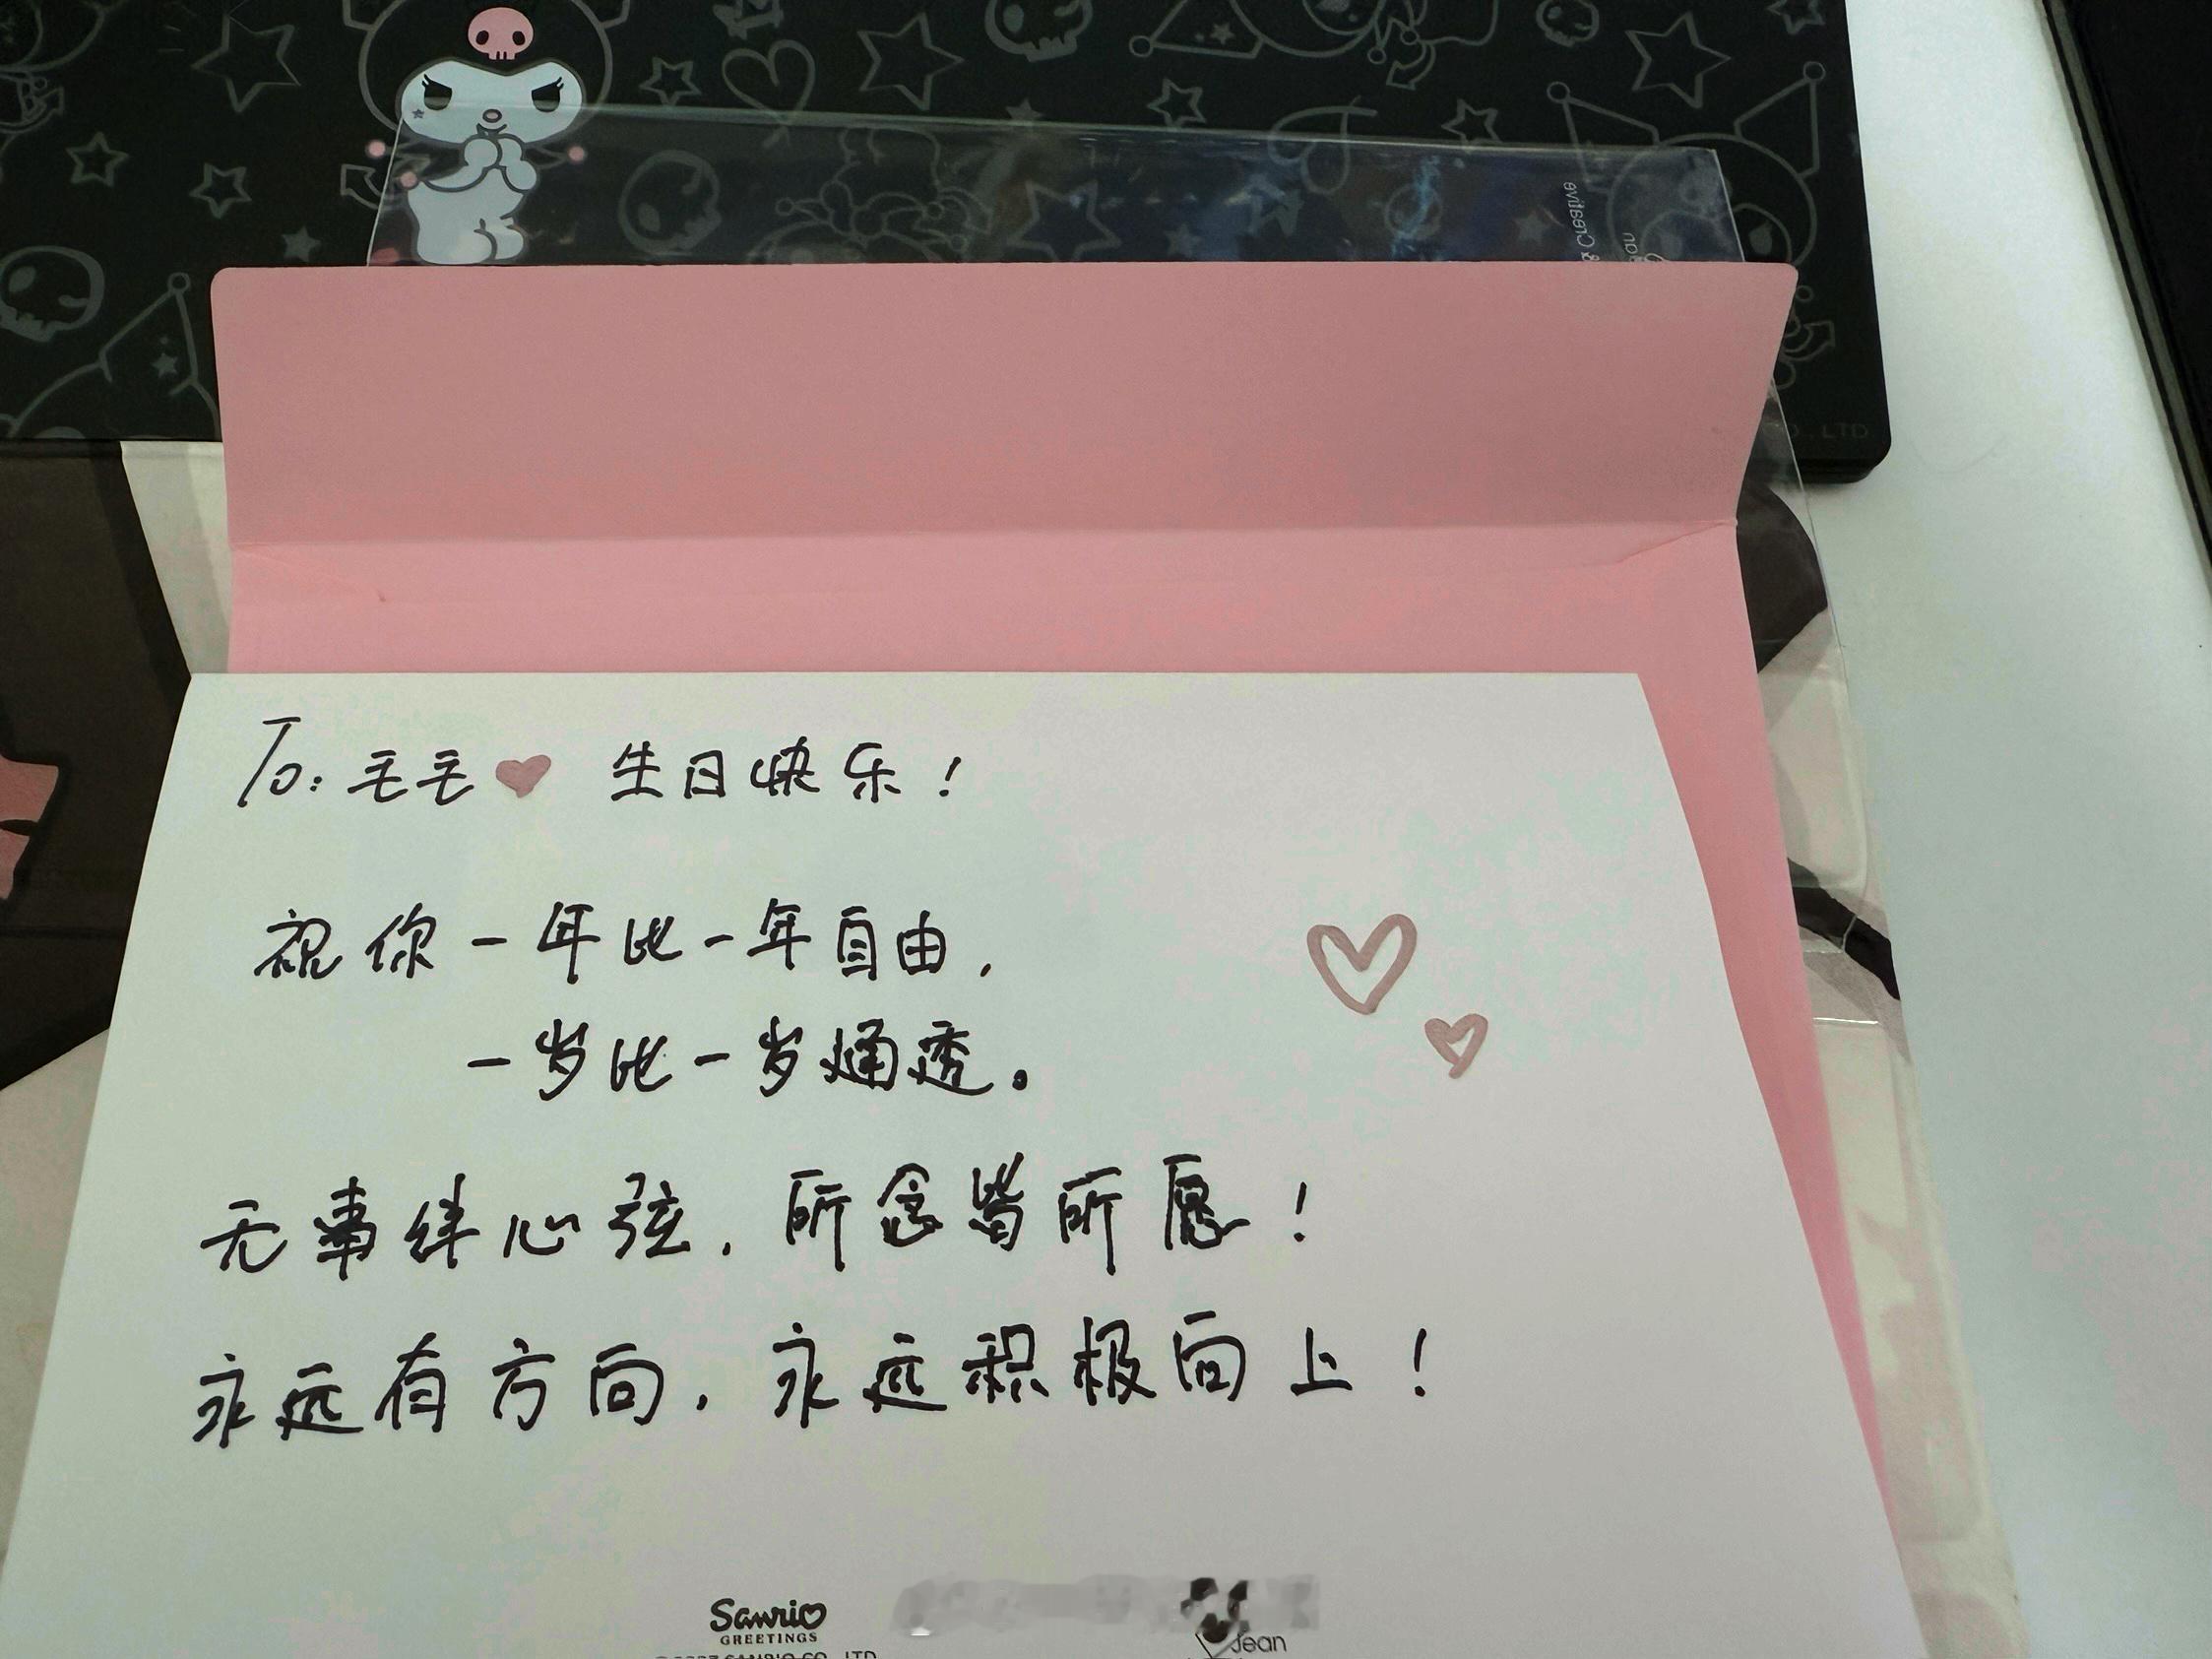 To: 毛毛 生日快乐！
祝你一年比一年自由，
一岁比一岁通透。
无事绊心弦，所念皆所愿！
永远有方向，永远积极向上！
Sanrio
GREETINGS
SANRIO CO., LTD.
Jean
Creative
CO., LTD